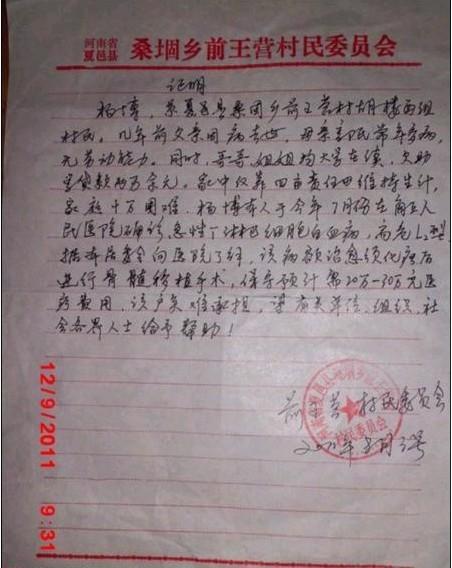 河南省
夏邑县
桑堌乡前王营村民委员会
证明
杨博，系夏邑县桑固乡前王营村胡楼西组
村民。几年前父亲因病去世，母亲
无劳动能力。同时，哥哥、姐姐均大学在读，欠助
学贷款两万余元。家中仅靠四亩责任田维持生计，
家庭十分困难。杨博本人于今年7月份在商丘人
民医院确诊急性T淋巴细胞白血病，高危L2型。
据本居委会向医院了解，该病欲治愈须化疗后
进行骨髓移植手术，保守预计需20万-30万元医
疗费用，该户实难承担，望有关单位、组织、社
会各界人士给予帮助！
前王营 村民委员会
村民委员会
12/9/2011
9:31